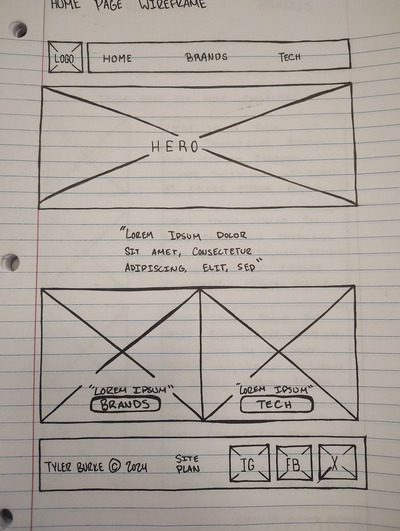 HOME PAGE WIREFRAME
LOGO HOME BRANDS TECH
HERO
"LOREM IPSUM DOLOR
SIT AMET, CONSECTETUR
ADIPISCING, ELIT, SED"
"LOREM IPSUM" "LOREM IPSUM"
BRANDS TECH
TYLER BURKE © 2024 SITE PLAN IG FB X